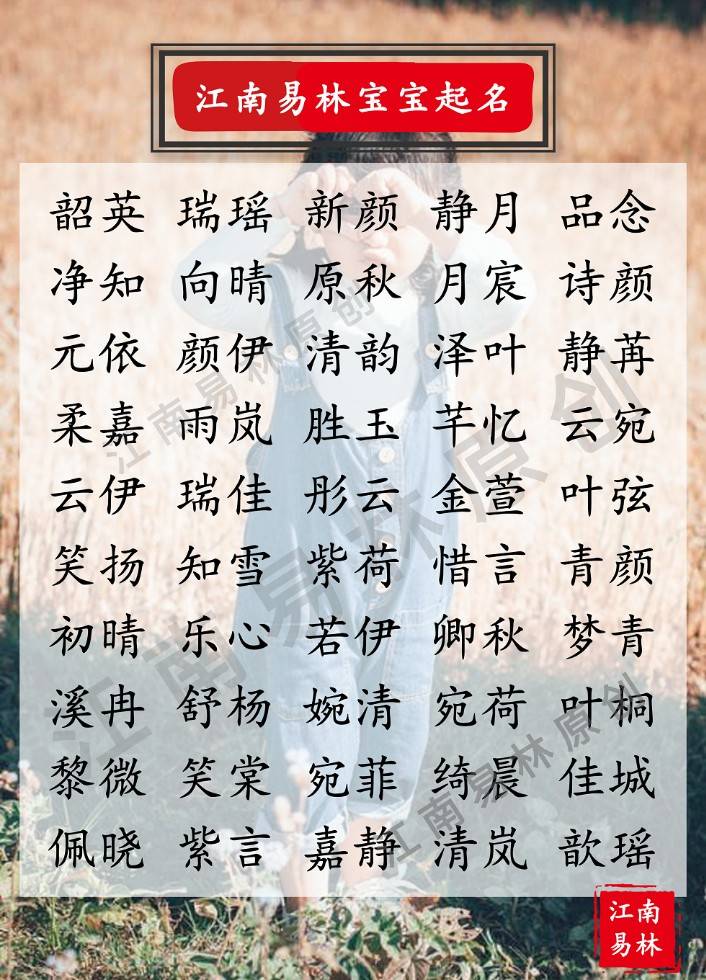 江南易林宝宝起名
韶英 瑞瑶 新颜 静月 品念
净知 向晴 原秋 月宸 诗颜
元依 颜伊 清韵 泽叶 静苒
柔嘉 雨岚 胜玉 芊忆 云宛
云伊 瑞佳 彤云 金萱 叶弦
笑扬 知雪 紫荷 惜言 青颜
初晴 乐心 若伊 卿秋 梦青
溪冉 舒杨 婉清 宛荷 叶桐
黎微 笑棠 宛菲 绮晨 佳城
佩晓 紫言 嘉静 清岚 歆瑶
江南易林原创
江南易林原创
江南易林原创
江南
易林